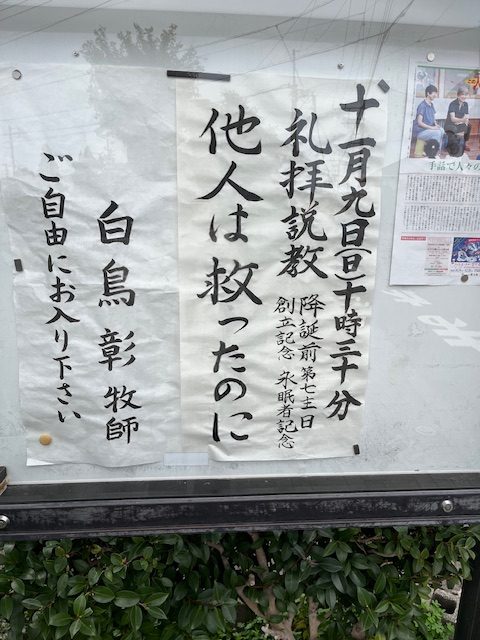 十一月九日(日)十時三十分
礼拝説教
降誕前第七主日
創立記念 永眠者記念
他人は救ったのに
白鳥彰牧師
ご自由にお入り下さい
手話で人々の